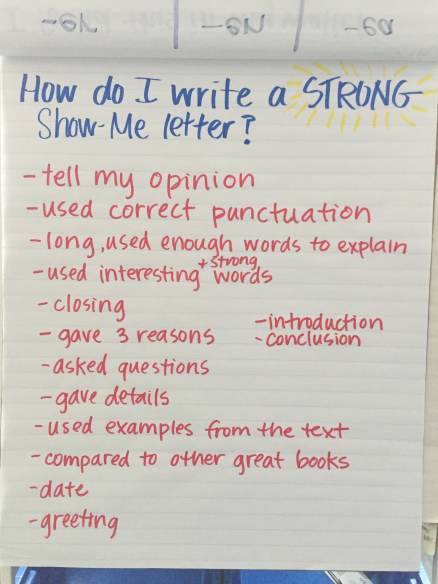 -er -en -ea
How do I write a STRONG
Show-Me letter?
- tell my opinion
- used correct punctuation
- long, used enough words to explain
- used interesting + strong words
- closing
- gave 3 reasons
- introduction
- conclusion
- asked questions
- gave details
- used examples from the text
- compared to other great books
- date
- greeting